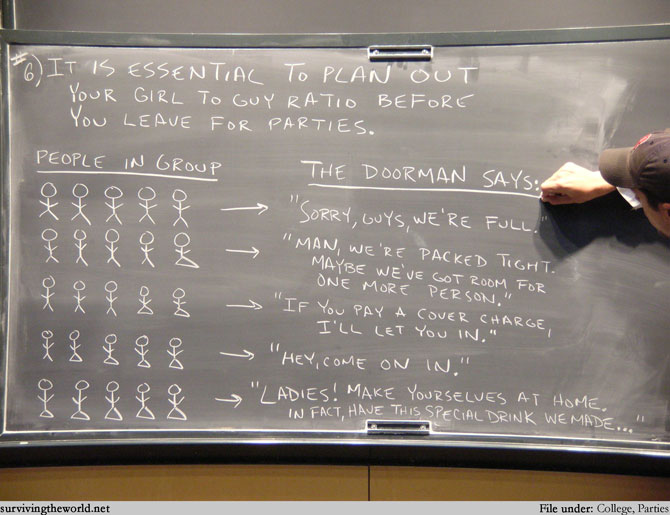 #6) IT IS ESSENTIAL TO PLAN OUT
YOUR GIRL TO GUY RATIO BEFORE
YOU LEAVE FOR PARTIES.
PEOPLE IN GROUP
THE DOORMAN SAYS:
"SORRY, GUYS, WE'RE FULL.
"MAN, WE'RE PACKED TIGHT.
MAYBE WE'VE GOT ROOM FOR
ONE MORE PERSON."
"IF YOU PAY A COVER CHARGE,
I'LL LET YOU IN."
"HEY, COME ON IN."
"LADIES! MAKE YOURSELVES AT HOME.
IN FACT, HAVE THIS SPECIAL DRINK WE MADE..."
survivingtheworld.net
File under: College, Parties